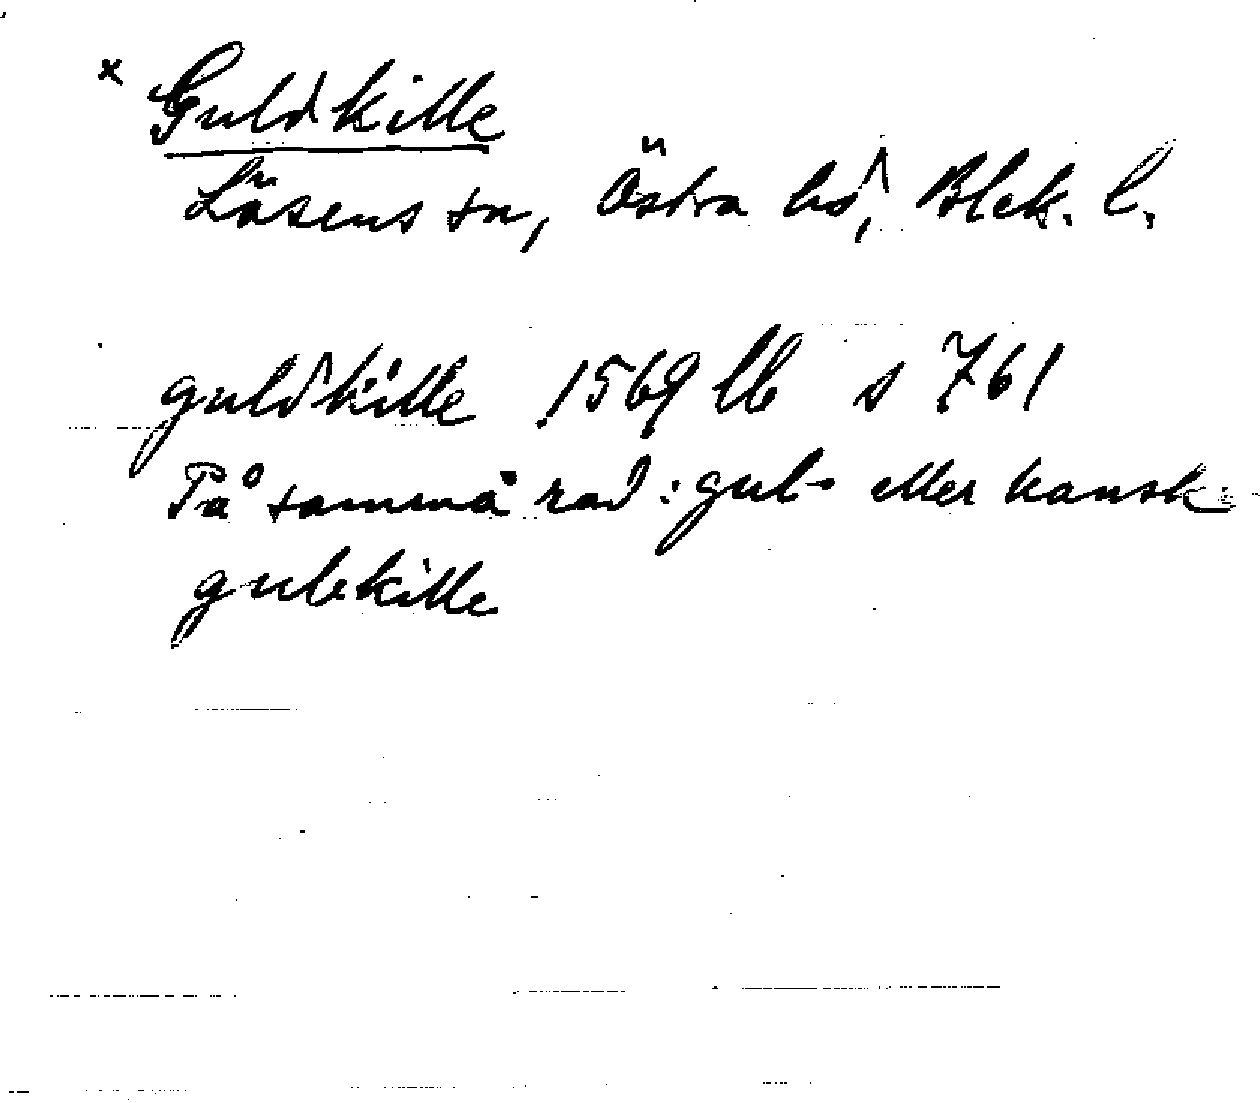 x Guldkille
Lösens sn, Östra hd, Blek. l.
guldkille 1569 lb s 761
På samma rad: gul- eller kansk
gulekille